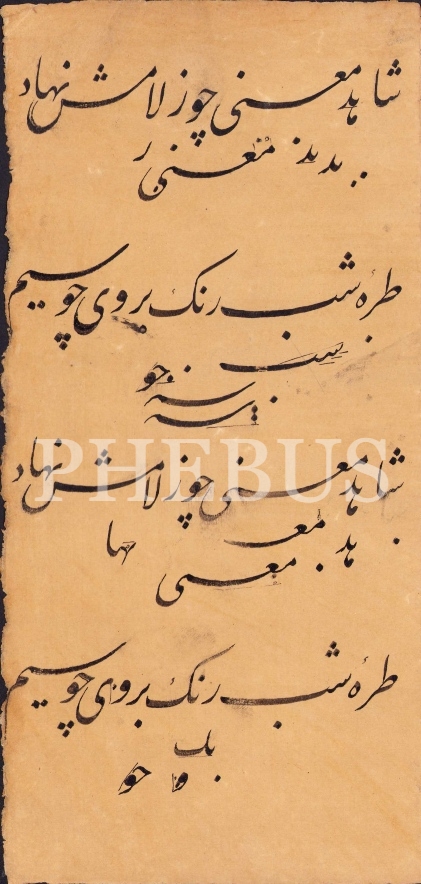 شاهد معنی چوز لامش نهاد
بد بد معنی ر
طرهٔ شب رنک بروی چو سیم
شب چو
سه
سه
PHEBUS
شاهد معنی چوز لامش نهاد
هد معـ ها
معنی
طرهٔ شب رنک بروی چو سیم
بک
ه چو